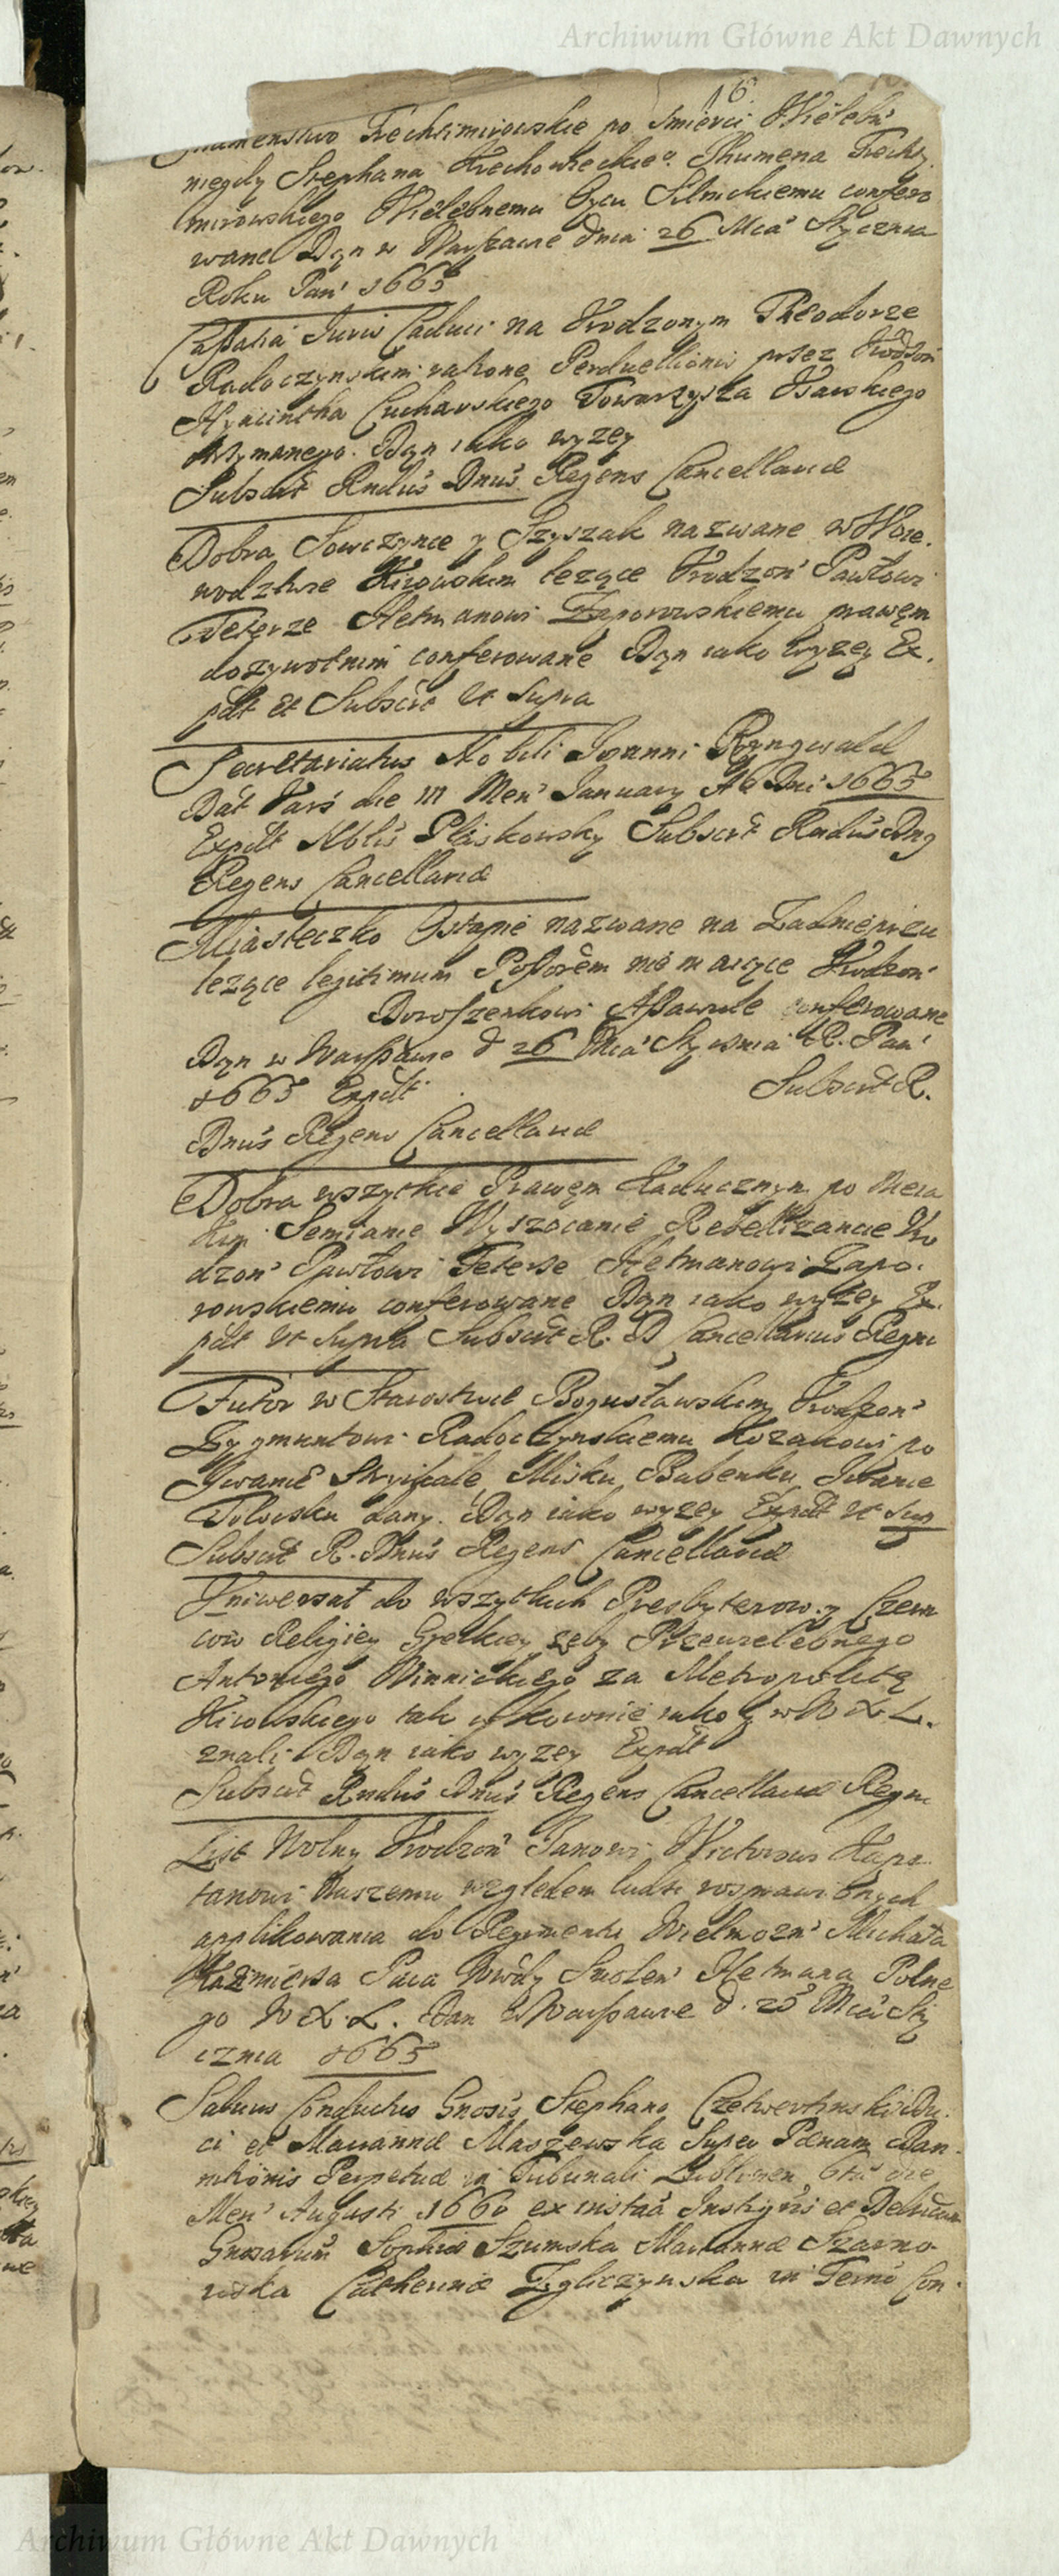 Archiwum Główne Akt Dawnych
16
Ihumenstwo Trechtimirowskie po Smierci Wielebn
niegdy Stephana Krechowieckieo Ihumena Trechty
mirowskiego Wielebnemu Oycu conferowane
wane Dan w Warszawie dnia 26 Mca Stycznia
Roku Pan 1665
Cassatia Juris Caduci na Urodzonym Theodorze
Radoczynskim ratione Perduellionis przez Urodzon
Hyacintha Cucharskiego Towarzysza Usarskiego
otrzymanego. Dan iako wyzey
Subscrit Rndus Dnus Regens Cancellariae
Dobra Sowczynce y Szyszak nazwane w Woie.
wodztwie Kiiowskim lezące Urodzon Pawłowi
Teterze Hetmanowi Zaporowskiemu prawem
dozywotnim conferowane Dan iako wyzey Ex.
pdt et Subscrit ut Supra
Secretariatus Nobili Joanni Ryngwald
Dat Vars die III Men January A D Dni 1665
Expdt Nblis Pliskowsky Subscrit Rndus Dng
Regens Cancellariae
Miasteczko Ostapie nazwane na Zadnieprzu
lezące legitimum Possorem nie maiące Urodzon
Doroszenkowi Assawule conferowane
Dan w Warszawie d 26 Mca Stycznia R. Pan
1665 Expdt Subscrit R.
Dnus Regens Cancellariae
Dobra wszytkie Prawem Kaducznym po
Semianie Wyszocanie Rebellizancie Uro
dzon Pawłowi Teterze Hetmanowi Zapo.
rowskiemu conferowane Dan iako wyzey Ex.
pdt ut Supra Subscrit R. D Cancellarius Regni
Futor w Starostwie Bogusławskim Urodzon
Zygmuntowi Radoczynskiemu Kozakowi po
Iwanie Misku Bubenku Iwanie
dany. Dan iako wyzey Expdt ut Sup
Subscrit R. Dnus Regens Cancellariae
Uniwersał do wszytkich Presbyterow y Czern
cow Religiey Greckiey zeby Przewielebnego
Antoniego Winnickiego za Metropolitę
Kiiowskiego tak w Koronie iako y w W X L.
znali Dan iako wyzey Expdt
Subscrit Rndus Dnus Regens Cancellariae Regni
List Wolny Urodzon Janowi Kapi
tanowi Naszemu względem ludzi
applikowania do Regimentu Wielmozn Michała
Kazimierza Paca Wwdy Smolen Hetmana Polne
go W X. L. Dan w Warszawie d. 25 Mca Sty
cznia 1665
Salvus Conductus Gnosis Stephano Czetwertinski Du.
ci et Mariannae Maszewska Super Paenam Ban.
nitionis Perpetuae in Tribunali Lublinen die
Men Augusti 1660 ex instaa Instigris et
Gnosarum Sophiae Szumska Mariannae Szarno
wska Catherinae Zgliczynska in Con.
Archiwum Główne Akt Dawnych